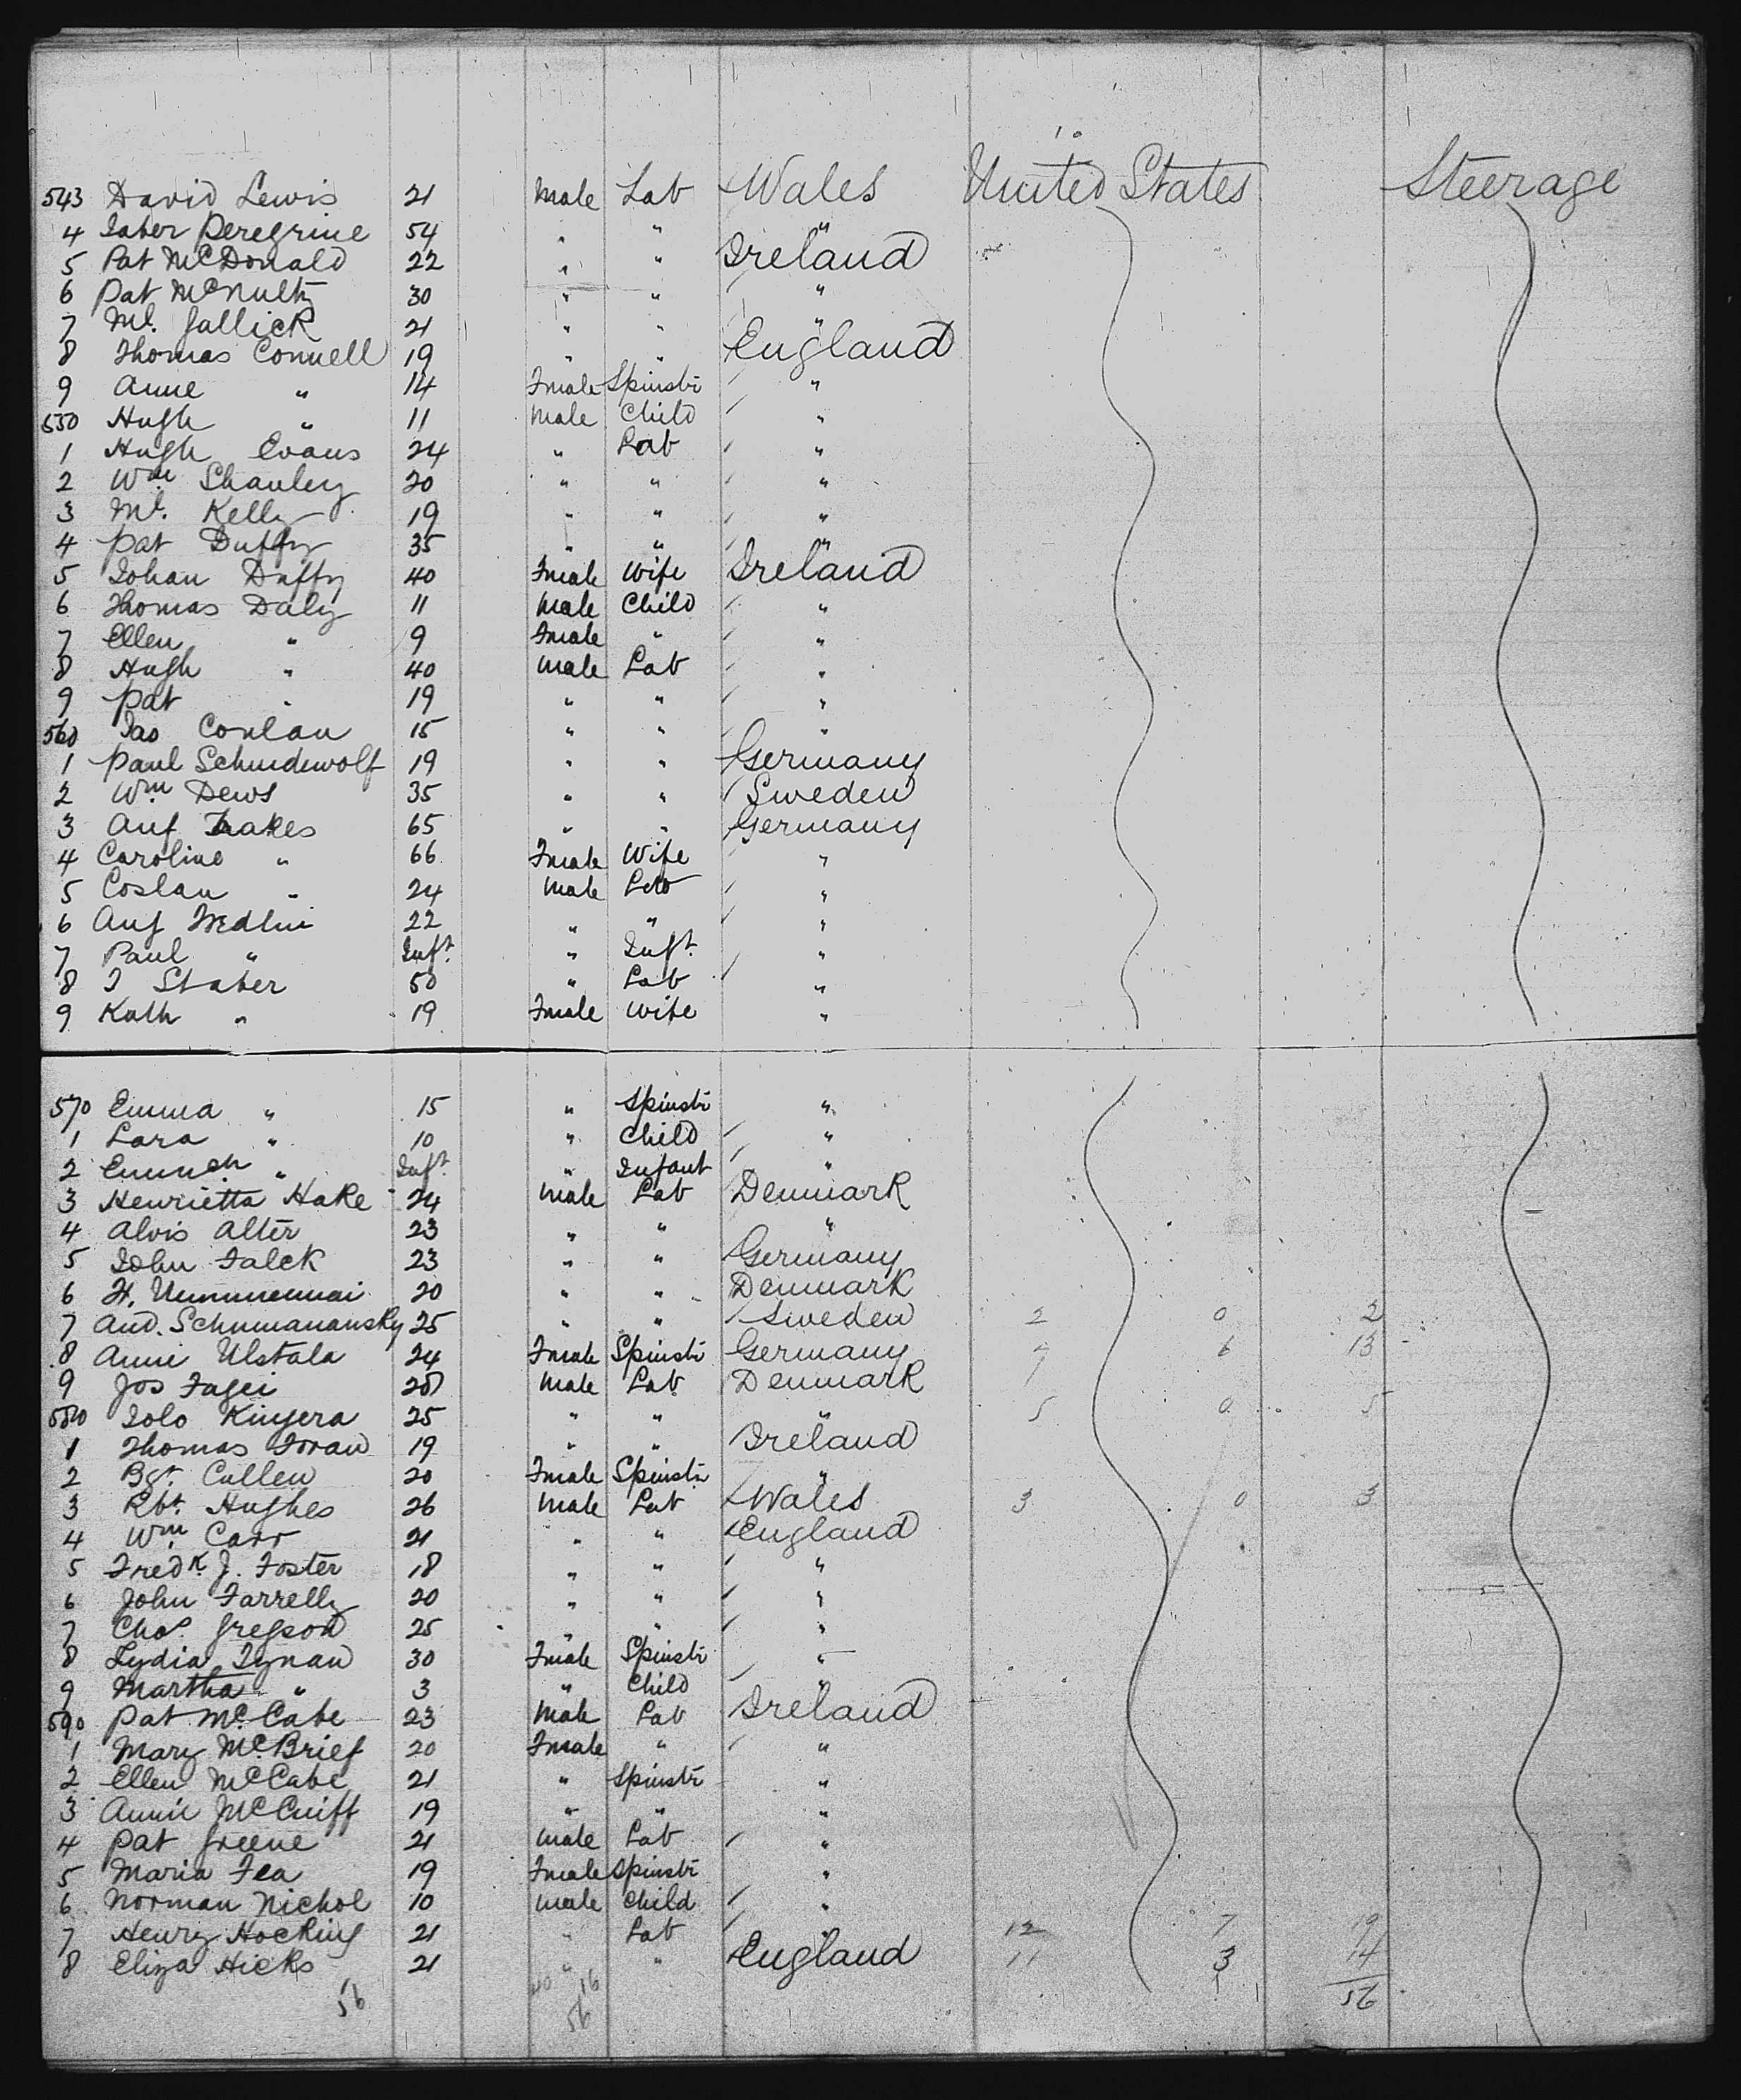 543 David Lewis 21 Male Lab Wales United States Steerage
4 Jaber Peregrine 54 " " "
5 Pat McDonald 22 " " Ireland
6 Pat McNulty 30 " " "
7 Ml. Gallick 21 " " "
8 Thomas Connell 19 " " England
9 Anne " 14 Fmale Spinstr "
550 Hugh " 11 Male Child "
1 Hugh Evans 24 " Lab "
2 Wm Shanley 20 " " "
3 Ml. Kelly 19 " " "
4 Pat Duffy 35 " " "
5 Johan Duffy 40 Fmale Wife Ireland
6 Thomas Daly 11 Male Child "
7 Ellen " 9 Fmale " "
8 Hugh " 40 Male Lab "
9 Pat " 19 " " "
560 Jas Conlan 15 " " "
1 Paul Schindewolf 19 " " Germany
2 Wm Dews 35 " " Sweden
3 Aug Hakes 65 " " Germany
4 Caroline " 66 Fmale Wife "
5 Coslau " 24 Male Lab "
6 Aug 22 " " "
7 Paul " Inft. " Inft. "
8 J Staber 50 " Lab "
9 Kath " 19 Fmale Wife "
570 Emma " 15 " Spinstr "
1 Lara " 10 " Child "
2 " Inft " Infant "
3 Henrietta Hake 24 Male Lab Denmark
4 Alvis Alter 23 " " "
5 John Falck 23 " " Germany
6 H. 20 " " Denmark
7 And. Schumanansky 25 " " Sweden 2 0 2
8 Anni Ulstala 24 Fmale Spinstr Germany 7 6 13
9 Jos Fagei 20 Male Lab Denmark
580 Jolo Kinyera 25 " " " 5 0 5
1 Thomas Foran 19 " " Ireland
2 Bgt. Cullen 20 Fmale Spinstr "
3 Rbt. Hughes 26 Male Lab Wales 3 0 3
4 Wm. Carr 21 " " England
5 Fredk. J. Foster 18 " " "
6 John Farrelly 20 " " "
7 Chas. Gregson 25 " " "
8 Lydia Tynan 30 Fmale Spinstr "
9 Martha " 3 " Child "
590 Pat McCabe 23 Male Lab Ireland
1 Mary McBrief 20 Fmale " "
2 Ellen McCabe 21 " Spinstr "
3 Annie McCuiff 19 " " "
4 Pat Greene 21 Male Lab "
5 Maria Fea 19 Fmale Spinstr "
6 Norman Nichol 10 Male Child "
7 Henry Hocking 21 " Lab " 12 7 19
8 Eliza Hicks 21 " " England 11 3 14
56 40 16 56
56